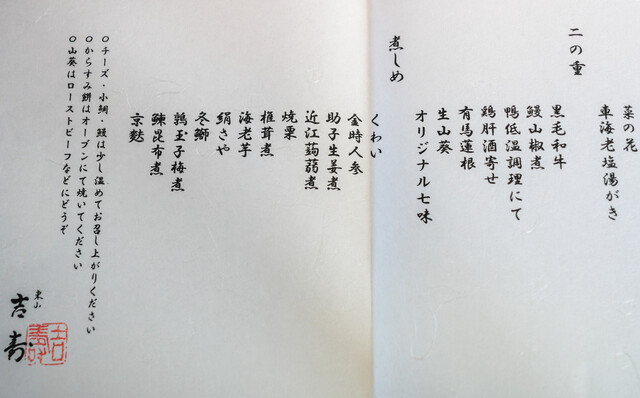 菜の花
車海老塩湯がき
二の重
黒毛和牛
鰻山椒煮
鴨低温調理にて
鶏肝酒寄せ
有馬蓮根
生山葵
オリジナル七味
煮しめ
くわい
金時人参
助子生姜煮
近江蒟蒻煮
焼栗
椎茸煮
海老芋
絹さや
冬鰤
鶉玉子梅煮
鰊昆布煮
京麩
○チーズ・小鯛・鰻は少し温めてお召し上がりください
○からすみ餅はオーブンにて焼いてください
○山葵はローストビーフなどにどうぞ
東山
吉寿